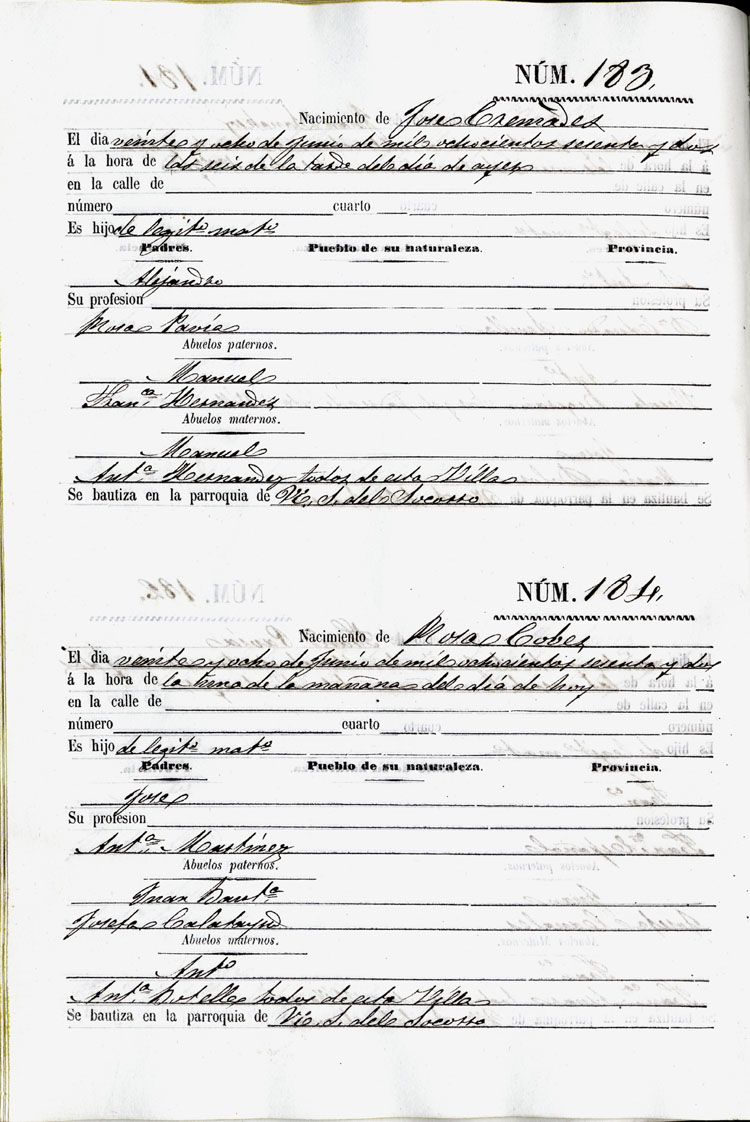 NÚM. 183.
Nacimiento de Jose Cremades
El dia veinte y ocho de Junio de mil ochocientos sesenta y dos
á la hora de las seis de la tarde del día de ayer
en la calle de
número cuarto
Es hijo de legit.º mat.º
Padres. Pueblo de su naturaleza. Provincia.
Alejandro
Su profesion
Rosa Pavía
Abuelos paternos.
Manuel
Fran.ca Hernandez
Abuelos maternos.
Manuel
Ant.a Hernandez todos de esta Villa
Se bautiza en la parroquia de N. S. del Socorro
NÚM. 184.
Nacimiento de Rosa Cobes
El dia veinte y ocho de Junio de mil ochocientos sesenta y dos
á la hora de la una de la mañana del día de hoy
en la calle de
número cuarto
Es hijo de legit.º mat.º
Padres. Pueblo de su naturaleza. Provincia.
Jose
Su profesion
Ant.a Martinez
Abuelos paternos.
Juan Baut.a
Josefa Calatayud
Abuelos maternos.
Ant.º
Ant.a Botella todos de esta Villa
Se bautiza en la parroquia de N. S. del Socorro